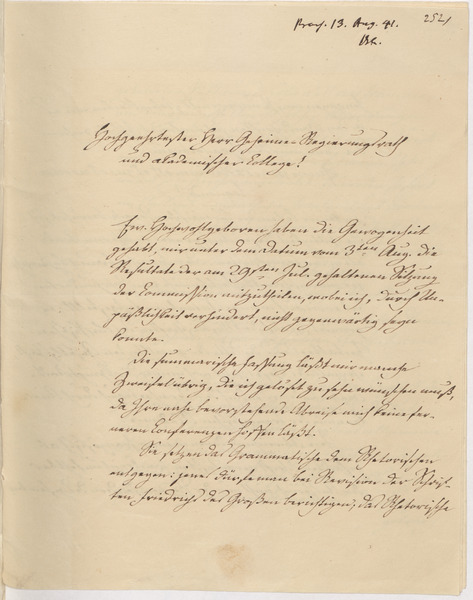 Praes. 13. Aug. 41.
Bk.
252
Hochgeehrtester Herr Geheime-Regierungsrath
und akademischer College!
Ew. Hochwohlgeboren haben die Gewogenheit
gehabt, mir unter dem Datum vom 3ten Aug. die
Resultate der am 29sten Jul. gehaltenen Sitzung
der Commission mitzutheilen, wobei ich, durch Un-
päßlichkeit verhindert, nicht gegenwärtig seyn
konnte.
Die summarische Fassung läßt mir manche
Zweifel übrig, die ich gelöset zu sehn wünschen muß,
da Ihre nahe bevorstehende Abreise mich keine fer-
neren Conferenzen hoffen läßt.
Sie setzen das Grammatische dem Rhetorischen
entgegen: jenes dürfe man bei Revision der Schrif-
ten Friedrichs des Großen berichtigen, das Rhetorische